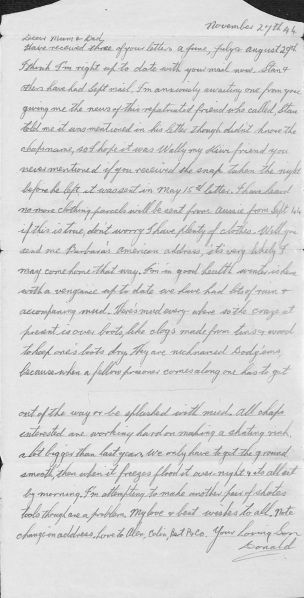 November 27th 44
Dear Mum & Dad,
Have received three of your letters, 2 June, July & August 29th
I think I'm right up to date with your mail now. Stan &
Alex have had later mail. I'm anxiously awaiting one from you
giving me the news of this repatriated friend who called, Stan
told me it was mentioned in his letter though didn't know the
chap's name, so I hope it was Wally my Kiwi friend you
never mentioned if you received the snap taken the night
before he left, it was sent in May 15th letter. I have heard
no more clothing parcels will be sent from Aussie from Sept 44
if this is true, don't worry I have plenty of clothes. Will you
send me Barbara's American address, it's very likely I
may come home that way. I'm in good health winter is here
with a vengance up to date we have had lots of rain &
accompanying mud. There's mud everywhere so the craze at
present is over boots, like clogs made from tins & wood
to keep one's boots dry. They are nicknamed Dodg'ems,
because when a fellow prisoner comes along one has to get
out of the way or be splashed with mud. All chaps
interested are working hard on making a skating rink,
a bit bigger than last years. We only have to get the ground
smooth, then when it freezes flood it over night & its all set
by morning. I'm attempting to make another pair of skates
tools though are a problem. My love & best wishes to all. Note
change in address. Love to Alex, Colin, Pat & Co. Your Loving Son
Donald